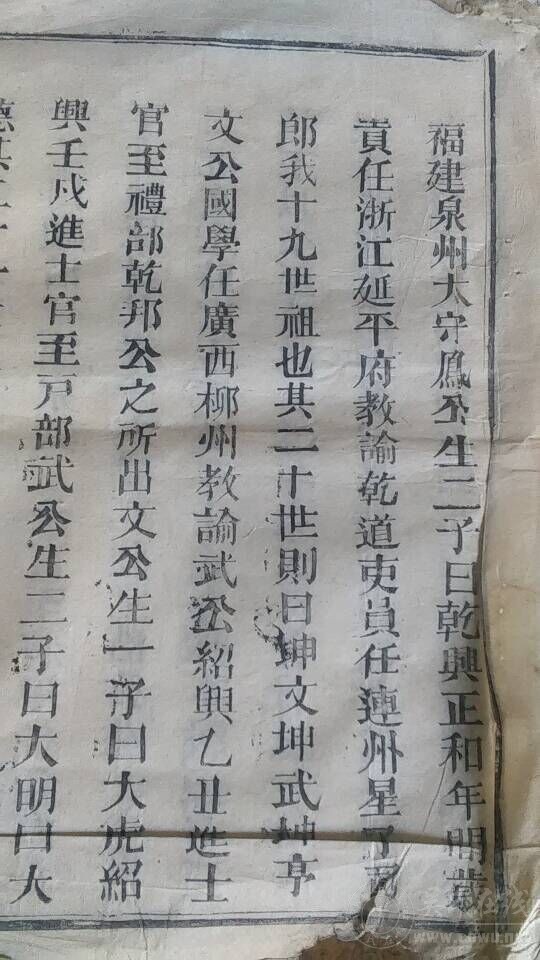 福建泉州太守鳳公生二子曰乾興正和年間歲
貢任浙江延平府教諭乾道吏員任連州星子司
郎我十九世祖也其二十世則曰坤文坤武坤亨
文公國學任廣西柳州教諭武公紹興乙丑進士
官至禮部乾邦公之所出文公生一子曰大虎紹
興壬戌進士官至戸部武公生二子曰大明曰大
德其二十一
www.